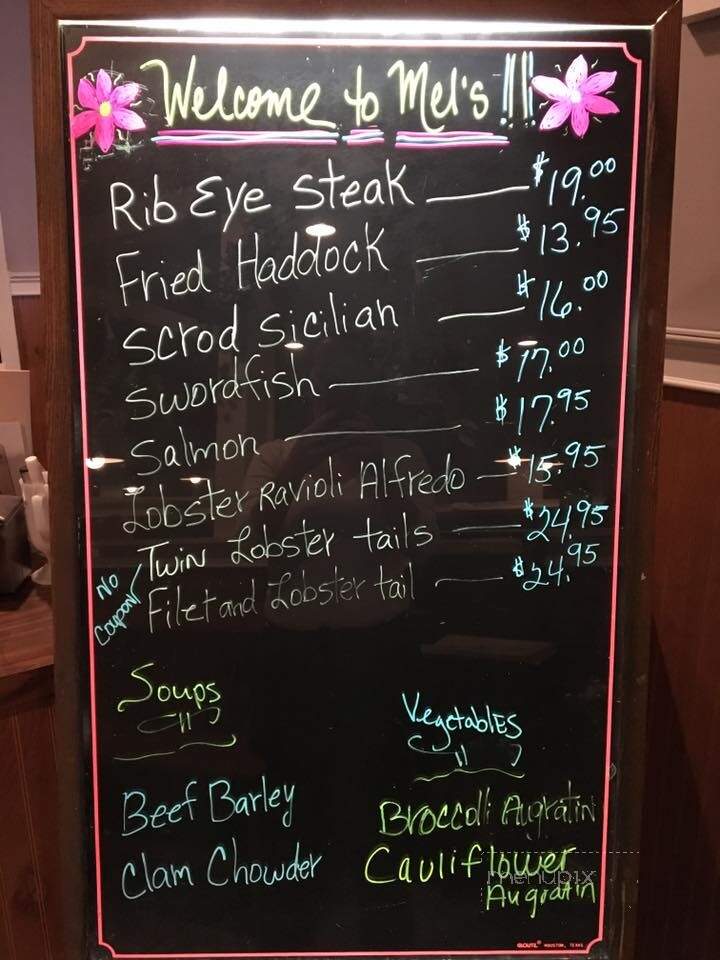 Welcome to Mel's !!!
Rib Eye Steak $19.00
Fried Haddock $13.95
Scrod Sicilian $16.00
Swordfish $17.00
Salmon $17.95
Lobster Ravioli Alfredo $15.95
Twin Lobster tails $24.95
Filet and Lobster tail $24.95
No
Coupon
Soups
Beef Barley
Clam Chowder
Vegetables
Broccoli Augratin
Cauliflower
Augratin
menupix
HOUSTON, TEXAS